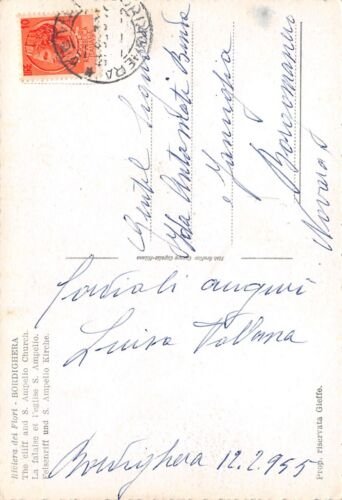 BORDIGHERA
Gentil Signora
Ida Antamati Binda
e Famiglia
Borgomanero
Novara
Cordiali auguri
Luisa Vollana
Bordighera 12.2.955
Riviera dei Fiori - BORDIGHERA
The cliff and S. Ampelio Church.
La falaise et l'eglise S. Ampelio.
Felsenriff und S. Ampelio Kirche.
Prop. riservata Gioffo.